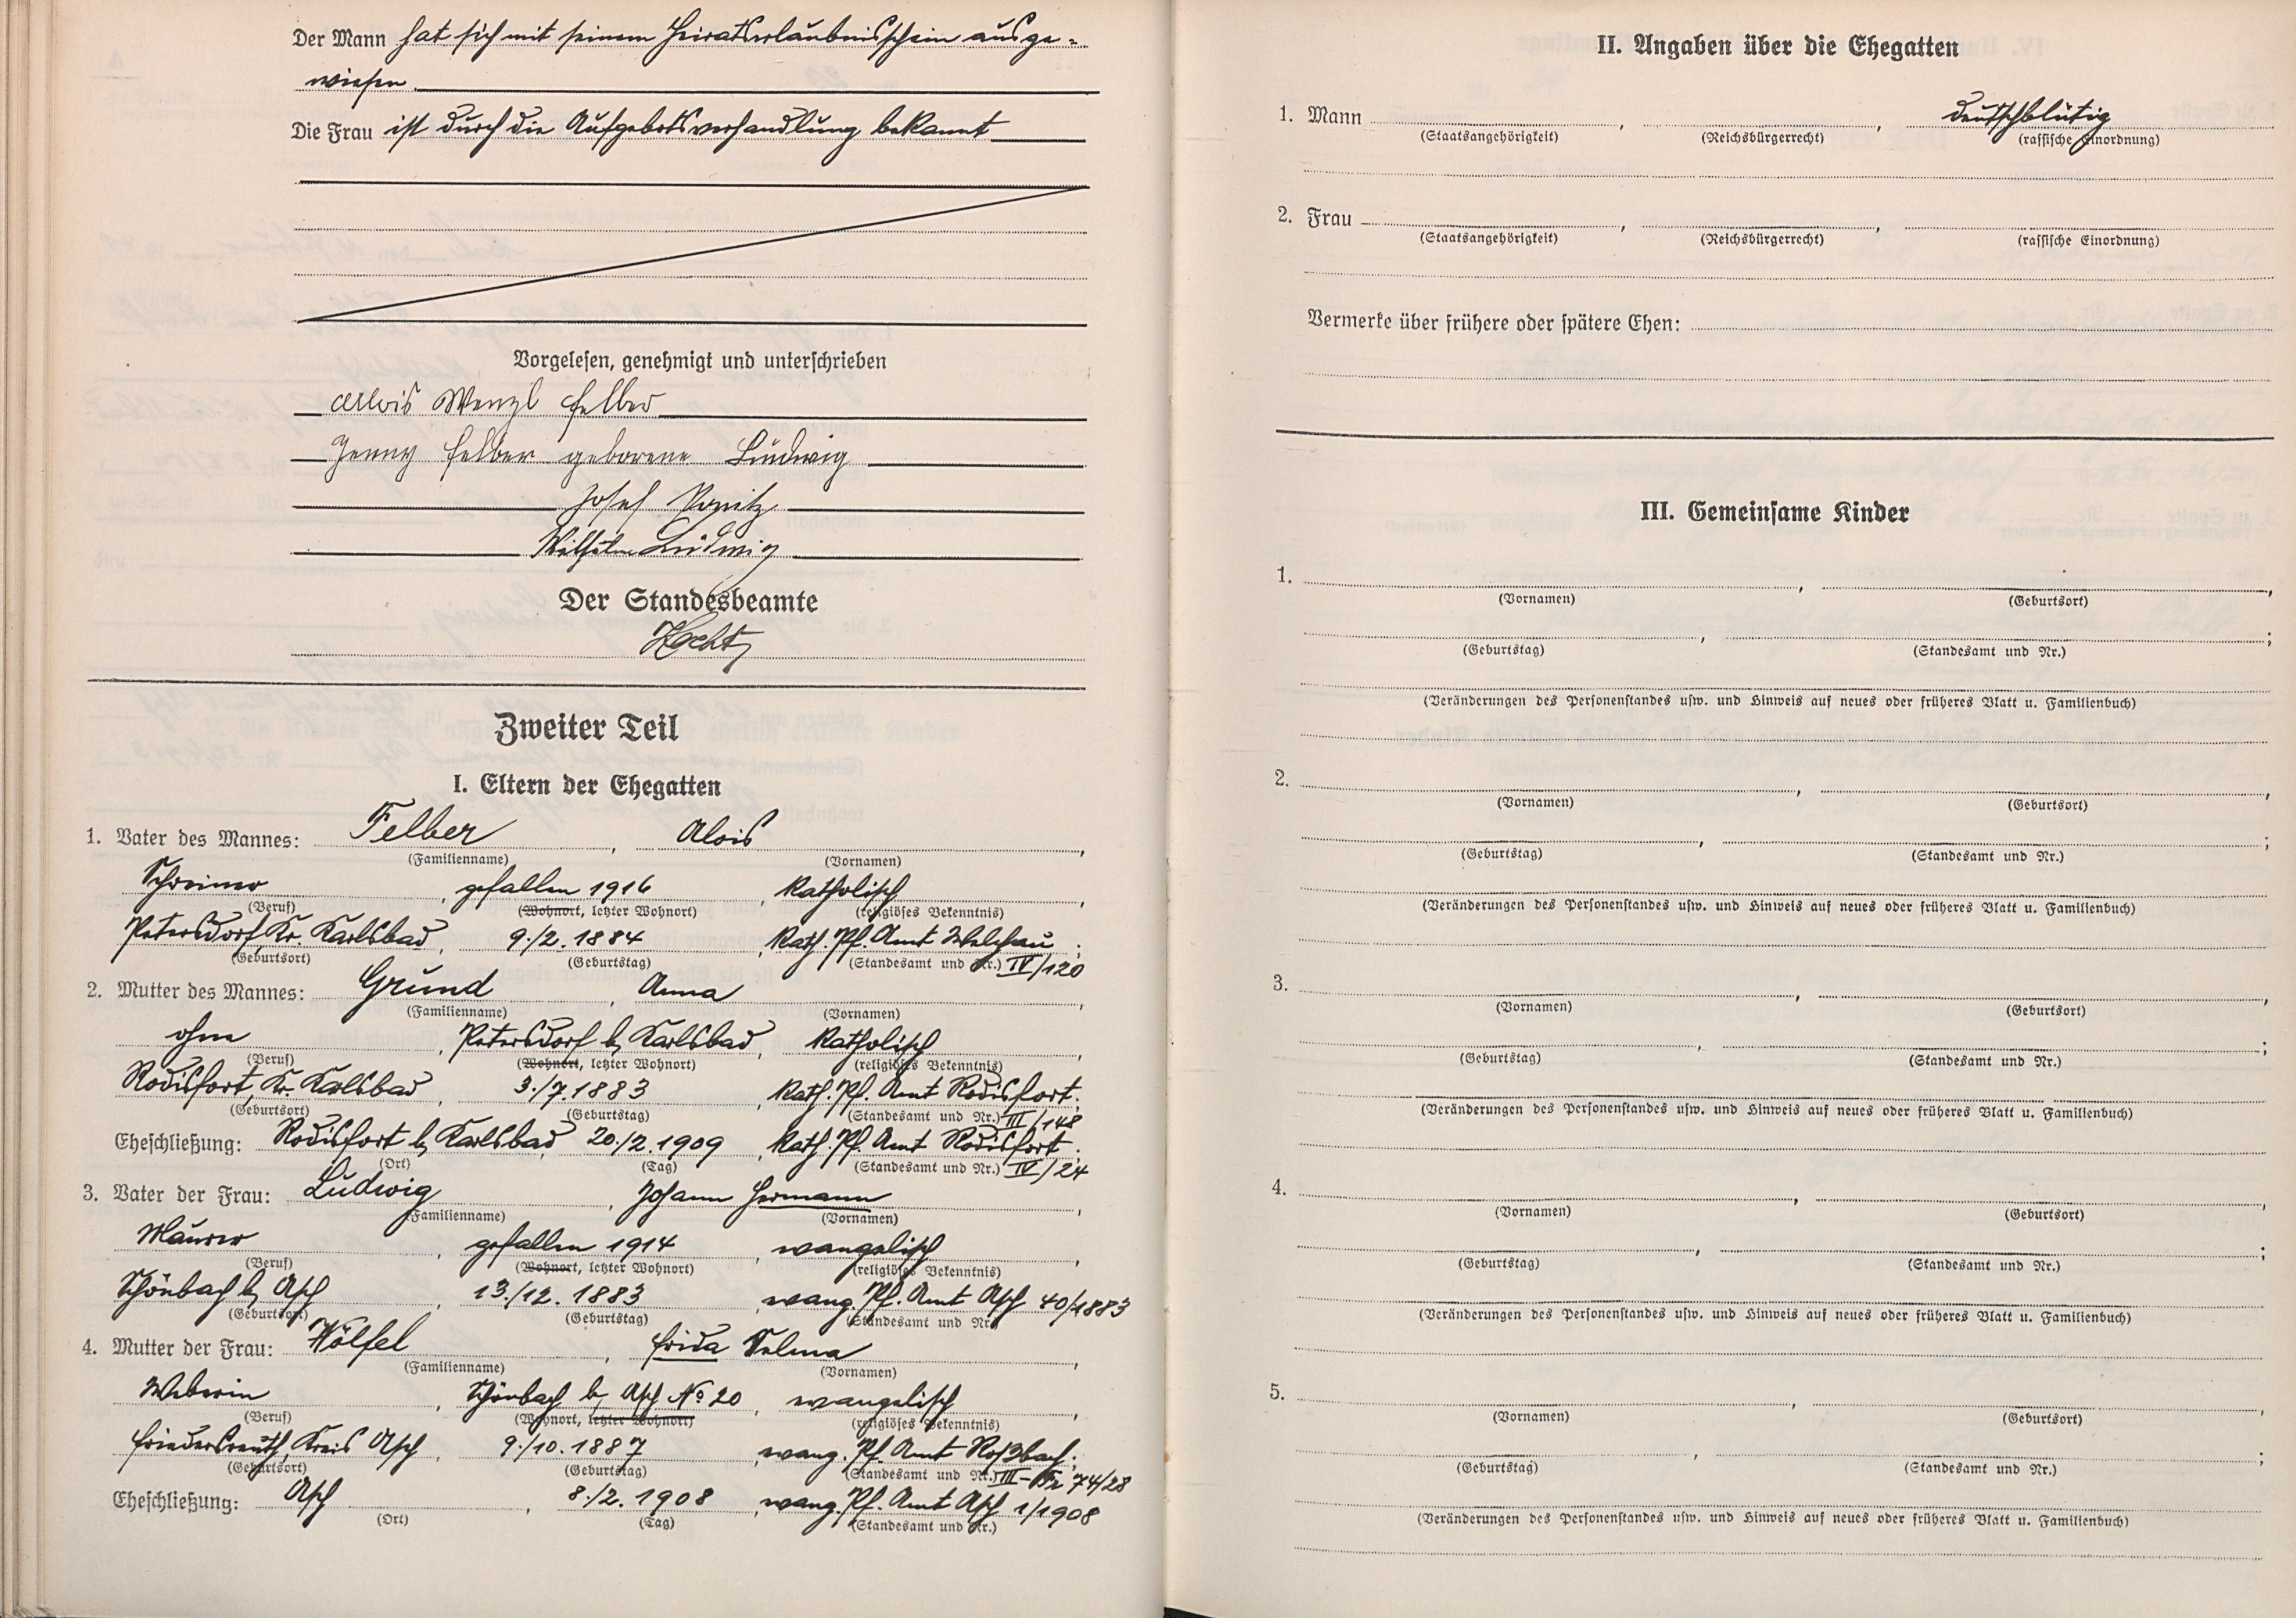 Der Mann hat sich mit seinem Heiratserlaubnisschein ausge-
wiesen.
Die Frau ist durch die Aufgebotsverhandlung bekannt
Vorgelesen, genehmigt und unterschrieben
Alois Wenzl Felber
Jenny Felber geborene Ludwig
Josef
Wilhelm Ludwig
Der Standesbeamte
Zweiter Teil
I. Eltern der Ehegatten
1. Vater des Mannes: Felber, Alois,
(Familienname) (Vornamen)
Schreiner, gefallen 1916, katholisch,
(Beruf) (Wohnort, letzter Wohnort) (religiöses Bekenntnis)
Petersdorf, Kr. Karlsbad, 9./2. 1884, Kath. Pf. Amt Welchau;
(Geburtsort) (Geburtstag) (Standesamt und Nr.) IV/120
2. Mutter des Mannes: Grund, Anna,
(Familienname) (Vornamen)
ohne, Petersdorf b/ Karlsbad, katholisch,
(Beruf) (Wohnort, letzter Wohnort) (religiöses Bekenntnis)
Rodisfort, Kr. Karlsbad, 3./7. 1883, Kath. Pf. Amt Rodisfort;
(Geburtsort) (Geburtstag) (Standesamt und Nr.) III/148
Eheschließung: Rodisfort b/ Karlsbad, 20./2. 1909, Kath. Pf. Amt Rodisfort;
(Ort) (Tag) (Standesamt und Nr.) IV/24
3. Vater der Frau: Ludwig, Johann Hermann,
(Familienname) (Vornamen)
Maurer, gefallen 1914, evangelisch,
(Beruf) (Wohnort, letzter Wohnort) (religiöses Bekenntnis)
Schönbach b/ Asch, 13./12. 1883, evang. Pf. Amt Asch 40/1883
(Geburtsort) (Geburtstag) (Standesamt und Nr.)
4. Mutter der Frau: Wölfel, Frida Selma,
(Familienname) (Vornamen)
Weberin, Schönbach b/ Asch No 20, evangelisch,
(Beruf) (Wohnort, letzter Wohnort) (religiöses Bekenntnis)
Friedersreuth, Kreis Asch, 9./10. 1887, evang. Pf. Amt Roßbach;
(Geburtsort) (Geburtstag) (Standesamt und Nr.) III-Fr 74/28
Eheschließung: Asch, 8./2. 1908, evang. Pf. Amt Asch 1/1908
(Ort) (Tag) (Standesamt und Nr.)
II. Angaben über die Ehegatten
1. Mann , , deutschblütig
(Staatsangehörigkeit) (Reichsbürgerrecht) (rassische Einordnung)
2. Frau , ,
(Staatsangehörigkeit) (Reichsbürgerrecht) (rassische Einordnung)
Vermerke über frühere oder spätere Ehen:
III. Gemeinsame Kinder
1. , ,
(Vornamen) (Geburtsort)
, ;
(Geburtstag) (Standesamt und Nr.)
(Veränderungen des Personenstandes usw. und Hinweis auf neues oder früheres Blatt u. Familienbuch)
2. , ,
(Vornamen) (Geburtsort)
, ;
(Geburtstag) (Standesamt und Nr.)
(Veränderungen des Personenstandes usw. und Hinweis auf neues oder früheres Blatt u. Familienbuch)
3. , ,
(Vornamen) (Geburtsort)
, ;
(Geburtstag) (Standesamt und Nr.)
(Veränderungen des Personenstandes usw. und Hinweis auf neues oder früheres Blatt u. Familienbuch)
4. , ,
(Vornamen) (Geburtsort)
, ;
(Geburtstag) (Standesamt und Nr.)
(Veränderungen des Personenstandes usw. und Hinweis auf neues oder früheres Blatt u. Familienbuch)
5. , ,
(Vornamen) (Geburtsort)
, ;
(Geburtstag) (Standesamt und Nr.)
(Veränderungen des Personenstandes usw. und Hinweis auf neues oder früheres Blatt u. Familienbuch)